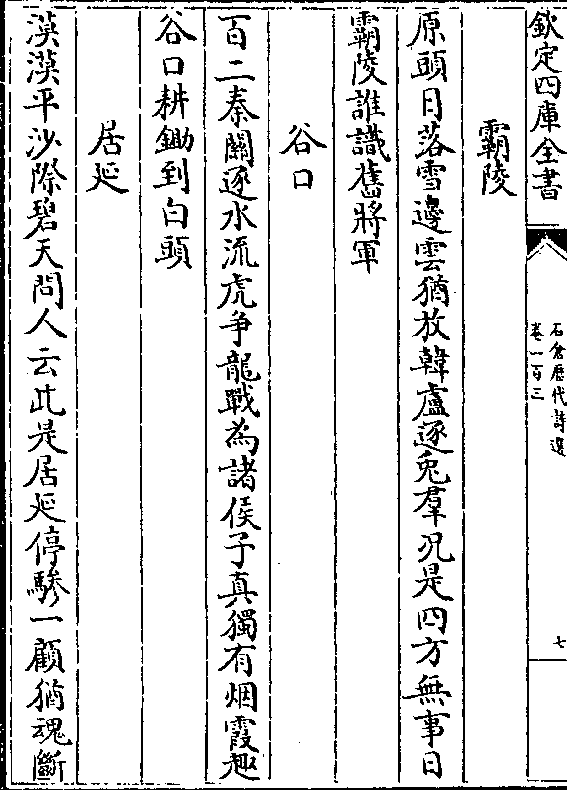 欽定四庫全書
石倉歷代詩選
卷一百三
七
霸陵
原頭日落雪邊雲猶放韓盧逐兎羣况是四方無事日
霸陵誰識舊將軍
谷口
百二秦關逐水流虎争龍戰為諸侯子真獨有烟霞趣
谷口耕鋤到白頭
居延
漠漠平沙際碧天問人云此是居延停驂一顧猶魂斷